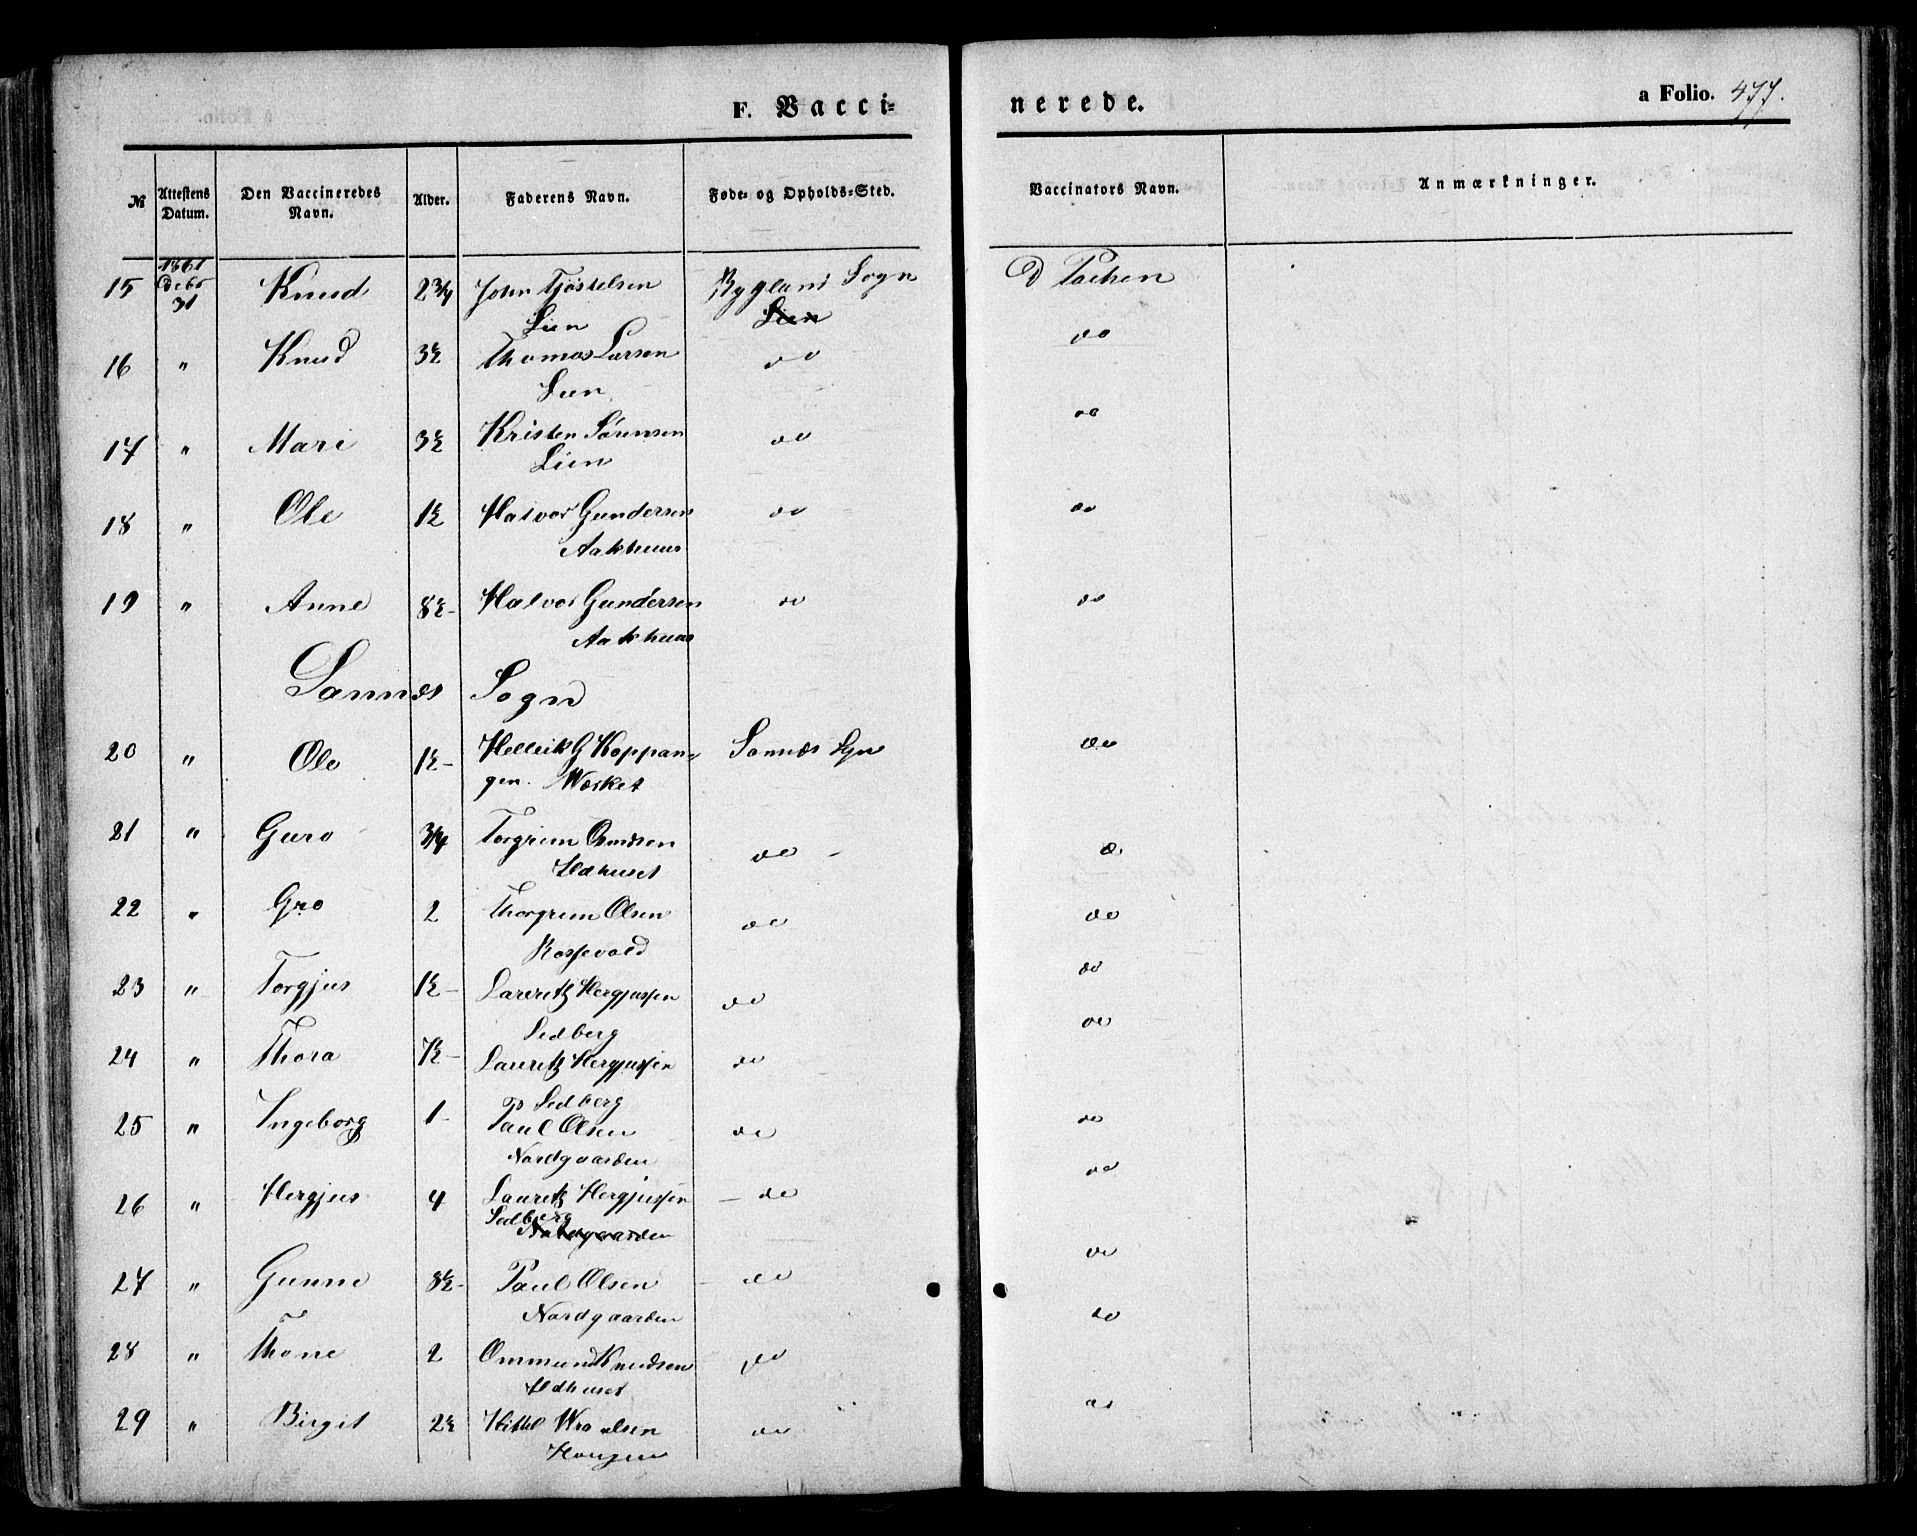 F. Vacci- nerede. a Folio. 477.
№ Attestens Datum. Den Vaccineredes Navn. Alder. Faderens Navn. Føde- og Opholds-Sted. Vaccinators Navn. Anmærkninger.
1861
15 31 Knud 2 3/4 John Tjøstelsen Bygland Sogn D
Lien Lien
16 " Knud 3½ Thomas Larsen do do
Lien
17 " Mari 3½ Kristen Sørensen do do
Lien
18 " Ole 1½ Halvor Gundersen do do
Aakhuus
19 " Anne 8½ - Halvor Gundersen do do
Aakhuus
Sannæs Sogn
20 " Ole 1½ - Helleik G Hoppan- Sannæs Sgn do
gen. Wærket
21 " Guro 3/4 Torgrim Osmdsen do - do
Ildhuset
22 " Gro 2 Thorgrim Olsen do do
Rossevold
23 " Torgjus 1½ - Lauritz Hergjussen do do
Sedberg
24 " Thora 7½ - Lauritz Hergjussen do do
Sedberg
25 " Ingeborg 1 - Paul Olsen do do
Nordgaarden
26 " Hergjus 4 Lauritz Hergjussen - do do
Sedberg
Nordgaarden
27 " Gunne 8½ - Paul Olsen - do do
Nordgaarden
28 " Thone 2 Ommund Knudsen do do
Ildhuset
29 " Birgit 2½ Kittel do do
Haugen